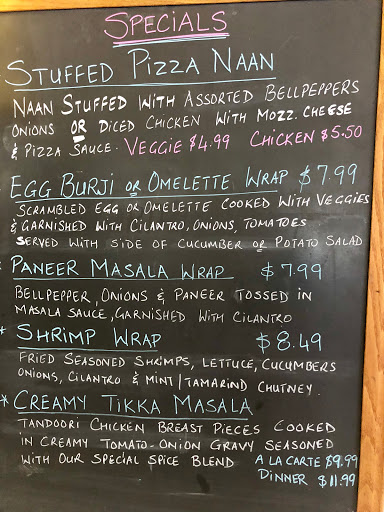 SPECIALS
STUFFED PIZZA NAAN
NAAN STUFFED WITH ASSORTED BELLPEPPERS
ONIONS OR DICED CHICKEN WITH MOZZ. CHEESE
& PIZZA SAUCE. VEGGIE $4.99 CHICKEN $5.50
EGG BURJI OR OMELETTE WRAP $7.99
SCRAMBLED EGG OR OMELETTE COOKED WITH VEGGIES
& GARNISHED WITH CILANTRO, ONIONS, TOMATOES
SERVED WITH SIDE OF CUCUMBER OR POTATO SALAD
PANEER MASALA WRAP $7.99
BELLPEPPER, ONIONS & PANEER TOSSED IN
MASALA SAUCE, GARNISHED WITH CILANTRO
* SHRIMP WRAP $8.49
FRIED SEASONED SHRIMPS, LETTUCE, CUCUMBERS
ONIONS, CILANTRO & MINT/TAMARIND CHUTNEY.
* CREAMY TIKKA MASALA
TANDOORI CHICKEN BREAST PIECES COOKED
IN CREAMY TOMATO-ONION GRAVY SEASONED
WITH OUR SPECIAL SPICE BLEND A LA CARTE $9.99
DINNER $11.99